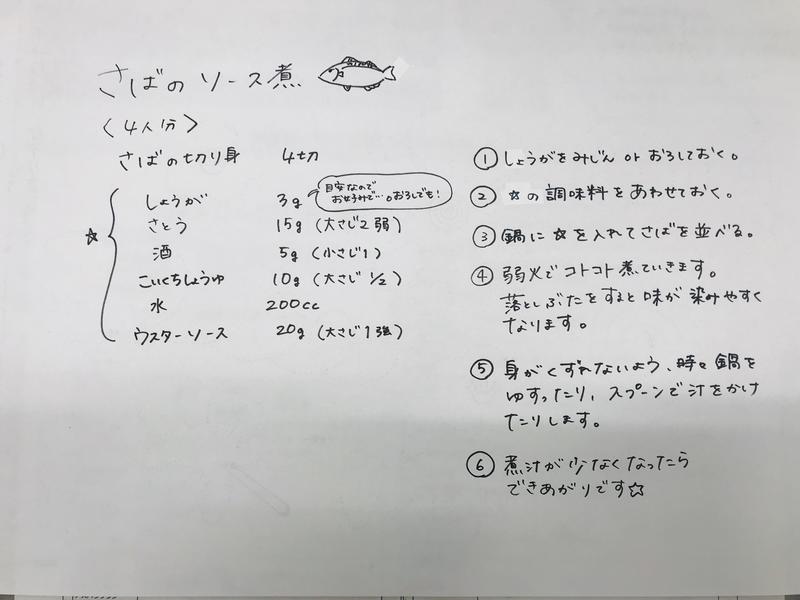 さばのソース煮
〈4人分〉
さばの切り身 4切
☆
しょうが 3g
目安なので
お好みで…。おろしでも!
さとう 15g (大さじ2弱)
酒 5g (小さじ1)
こいくちしょうゆ 10g (大さじ1/2)
水 200cc
ウスターソース 20g (大さじ1強)
① しょうがをみじん or おろしておく。
② ☆の調味料をあわせておく。
③ 鍋に☆を入れてさばを並べる。
④ 弱火でコトコト煮ていきます。
落としぶたをすると味が染みやすく
なります。
⑤ 身がくずれないよう、時々鍋を
ゆすったり、スプーンで汁をかけ
たりします。
⑥ 煮汁が少なくなったら
できあがりです☆